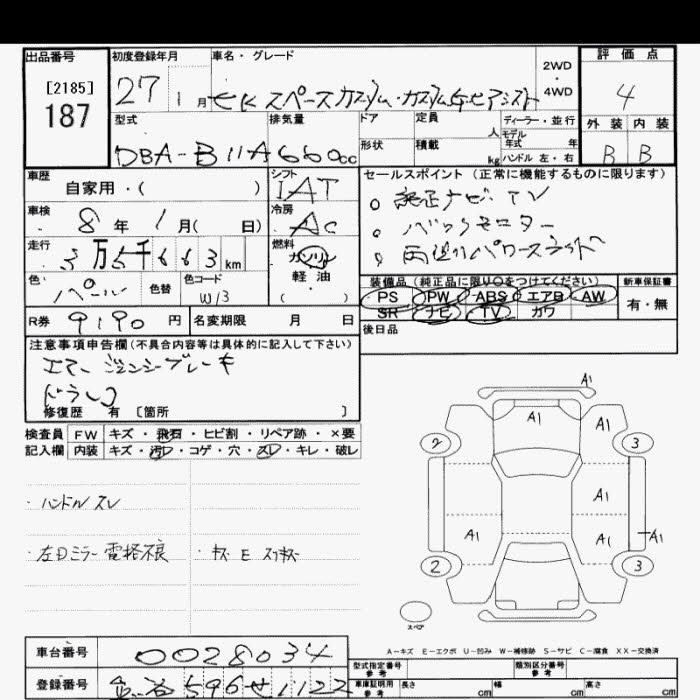 出品番号
[2185]
187
初度登録年月
27 1月
車名・グレード
ekスペースカスタム・カスタムGセーフアシスト
2WD
・
4WD
評価点
4
外装 内装
B B
型式
DBA-B11A
排気量
660cc
ドア
形状
定員
人
積載
kg
ディーラー・並行
モデル年式 年
ハンドル 左・右
車歴
自家用・( )
シフト
IAT
セールスポイント(正常に機能するものに限ります)
○ 純正ナビ・TV
○ バックモニター
○ 両側パワースライド
車検
8年 1月( 日)
冷房
AC
走行
3万5千663km
燃料
ガソリン
軽油
( )
色
パール
色替
色コード
W13
装備品(純正品に限り○をつけてください)
PS PW ABS エアB AW
SR ナビ TV カワ
新車保証書
有・無
R券 9190円
名変期限 月 日
後日品
注意事項申告欄(不具合内容等は具体的に記入して下さい)
エマージェンシーブレーキ
修復歴 有 [箇所 ]
検査員 FW キズ・飛石・ヒビ割・リペア跡・×要
記入欄 内装 キズ・汚れ・コゲ・穴・スレ・キレ・破レ
・ハンドルスレ
・左Dミラー電格不良
・キズ E スリキズ
A1
A1 A1
2 3
A1
A1 A1 A1
2 3
スペア
A-キズ E-エクボ U-凹み W-補修跡 S-サビ C-腐食 XX-交換済
車台番号 0028034
登録番号 596せ1122
型式指定番号
参考
類別区分番号
参考
車庫証明用
参考
長さ cm 幅 cm 高さ cm